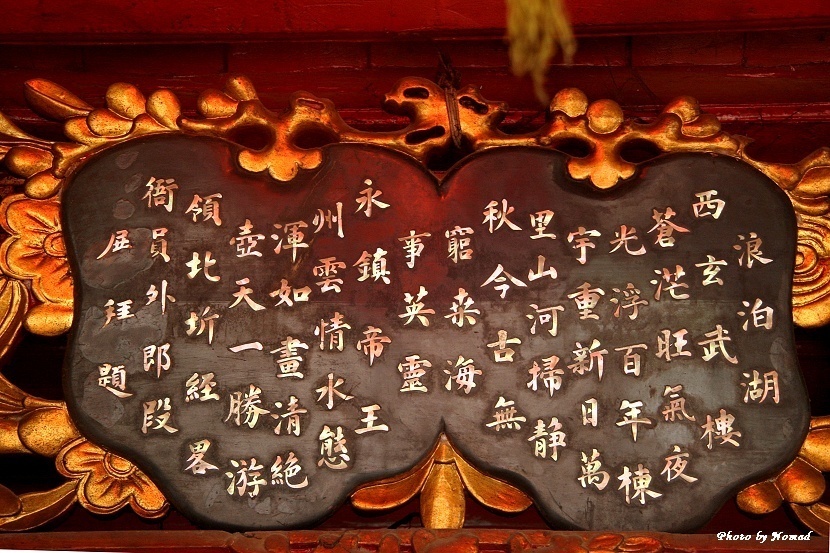 浪泊湖
西玄武樓
蒼茫旺氣夜
光浮百年棟
宇重新日萬
里山河掃靜
秋今古無
窮来海
事英靈
永鎮帝王
州雲情水態
渾如畫清絕
壺天一勝游
領北圻經畧
衙員外郎段
展拜題
Photo by Nomad